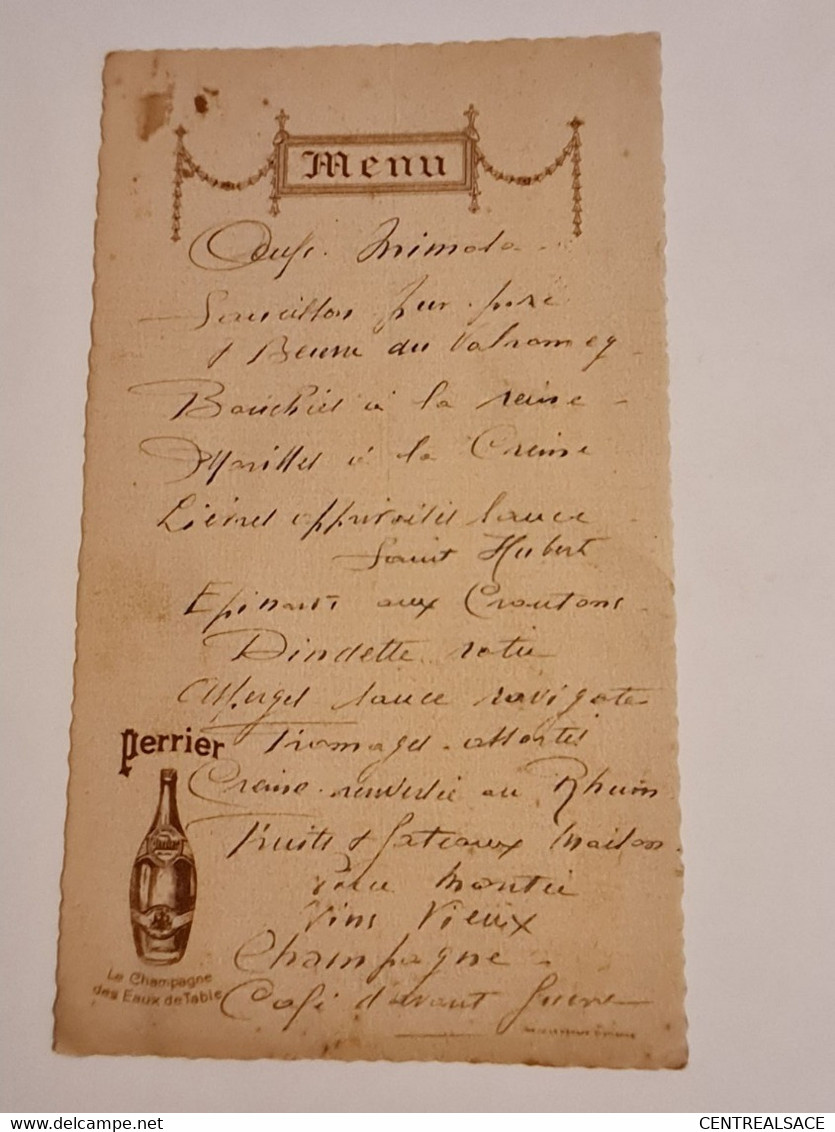 Menu
Oeufs Mimosa
Saucisson pur porc
& Beurre du Valromey
Bouchées à la reine
Morilles à la Crème
Lièvres sauce
Saint Hubert
Epinards aux Croutons
Dindette rotie
Asperges sauce ravigote
Perrier
Fromages assortis
Crème renversée au Rhum
Fruits & Gateaux Maison
Pièce Montée
Vins Vieux
Champagne
Café d'avant Guerre
Le Champagne
des Eaux de Table
CENTREALSACE